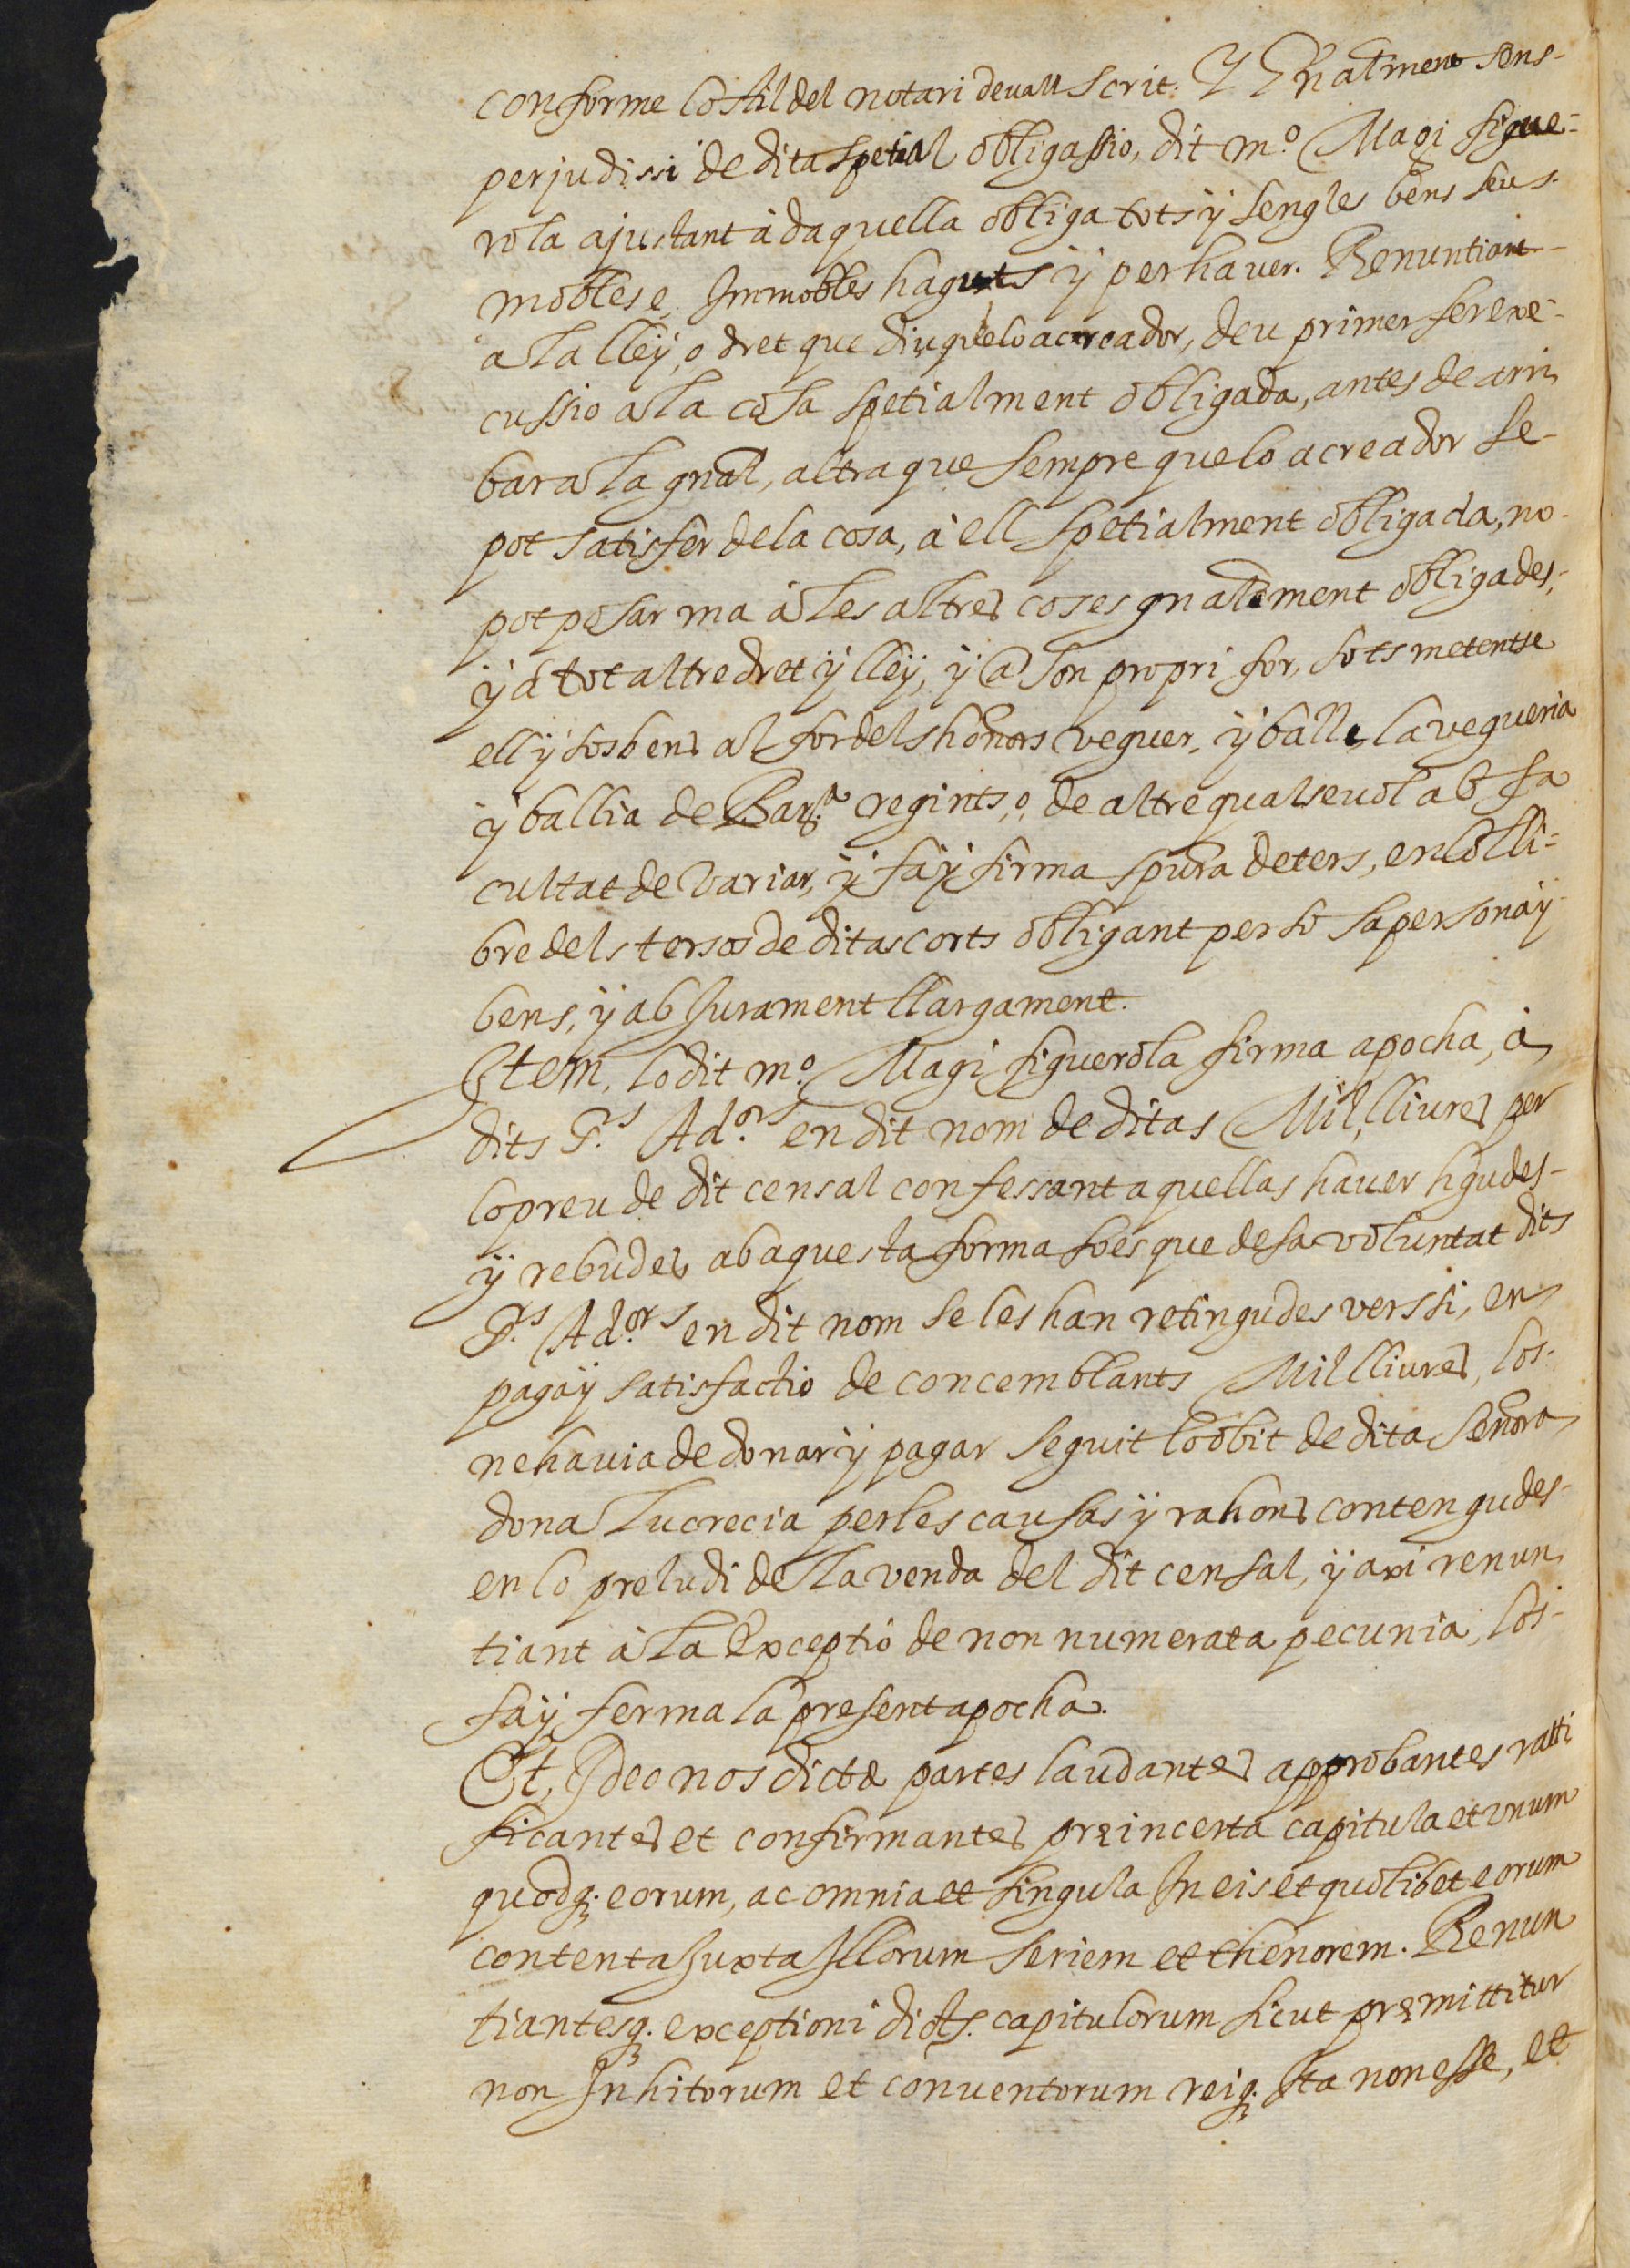 conforme lo stil del notari devall scrit. Y Gñalment sens-
perjudissi de dita spetial obligassio, dit m.º Magi figue-
rola ajustant à daquella obliga tots ÿ sengles bens seus.
mobles e, Immobles haguts ÿ per haver. Renuntiant
a la lley, o dret que diu que lo acreador, deu primer fer exe-
cussio a la cosa spetialment obligada, antes de arri
bar a la gñal, altra que sempre que lo acreador se-
pot satisfer de la cosa, à ell spetialment obligada, no-
pot posar ma à les altres coses gñalment obligades,
ÿ a tot altre dret ÿ lley, ÿ a son propri for, sots metentse
ell ÿ sos bens al for dels honors veguer, ÿ balle la vegueria
ÿ ballia de Bar.ª regints, o, de altre qualsevol ab fa
cultat de variar, ÿ fa ÿ firma spura de ters, en lo lli-
bre dels tersos de ditas corts obligant per so sa persona ÿ
bens, ÿ ab Jurament llargament.
Item, lo dit m.º Magi figuerola firma apocha, à
dits S.rs Ad.ors en dit nom de ditas Mil, lliures per
lo preu de dit censal confessant aquellas haver hgudes-
ÿ rebudes ab aquesta forma soes que de sa voluntat dits
S.rs Ad.ors en dit nom se les han retingudes vers si, en
paga ÿ satisfactio de concemblants Mil lliures, los-
ne havia de donar ÿ pagar seguit lo obit de dita señora
dona Lucrecia per les causas ÿ rahons contengudes-
en lo preludi de la venda del dit censal, ÿ axi renun
tiant à la Exceptio de non numerata pecunia, los-
fa ÿ ferma la present apocha.
Et, Ideo nos dictæ partes laudantes approbantes ratti
ficantes et confirmantes pręincerta capitula et unum
quodq; eorum, ac omnia et singula In eis et quolibet eorum
contenta Juxta Illorum seriem et thenorem. Renun
tiantesq. exceptioni dict̄s. capitulorum sicut pręmittitur
non Inhitorum et conventorum reiq. Ita non esse, et